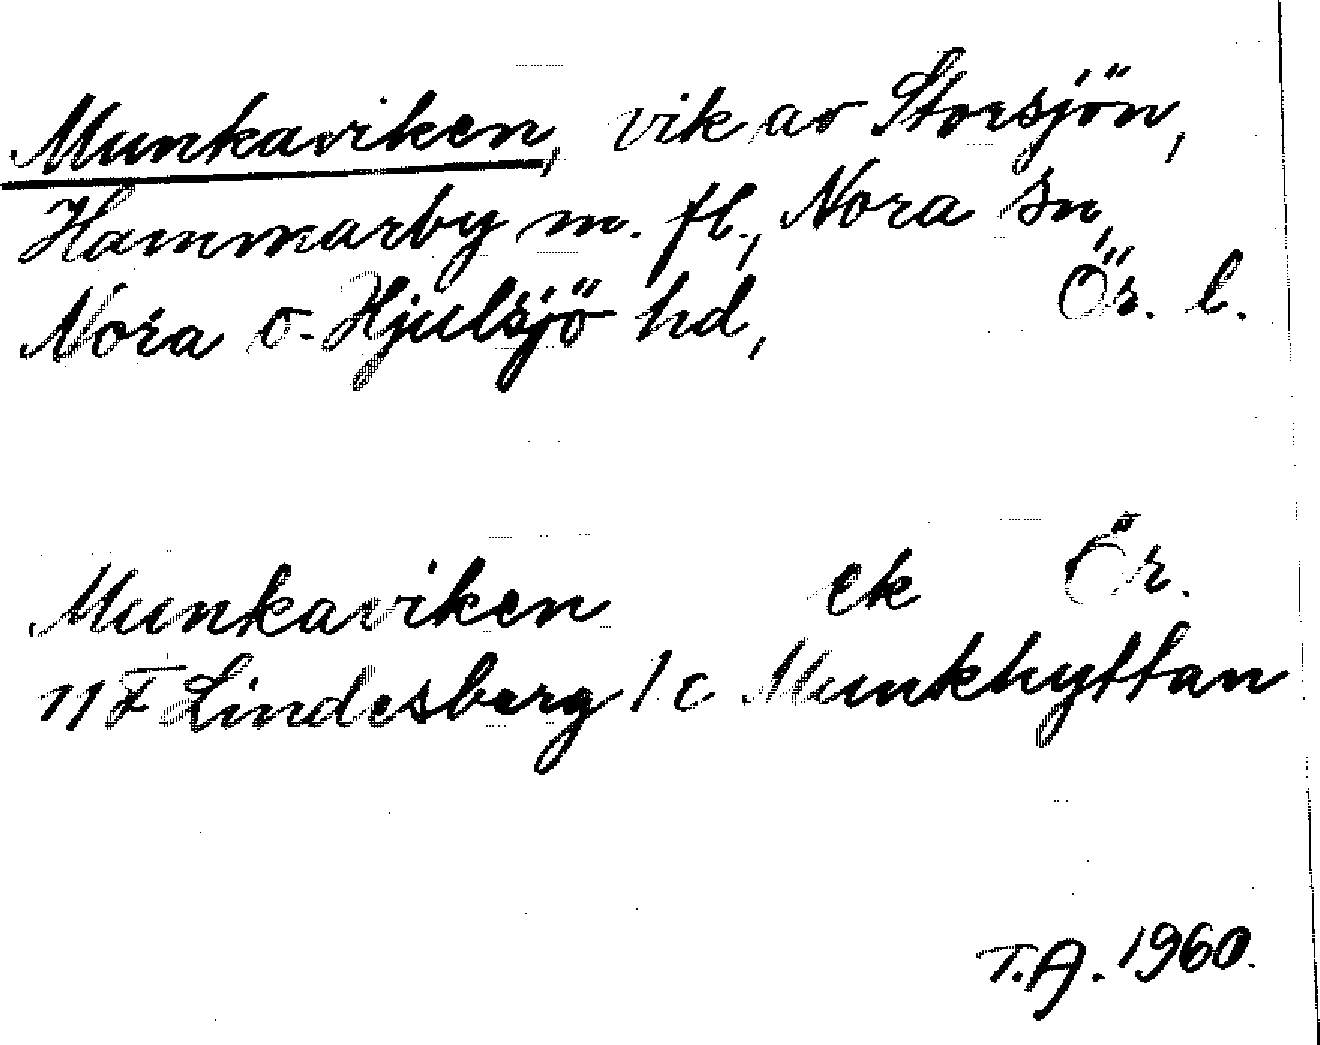 Munkaviken, vik av Storsjön,
Hammarby m. fl., Nora sn,
Nora o. Hjulsjö hd, Ör. l.
Munkaviken ek Ör.
11 F Lindesberg 1 c Munkhyttan
T.A. 1960.